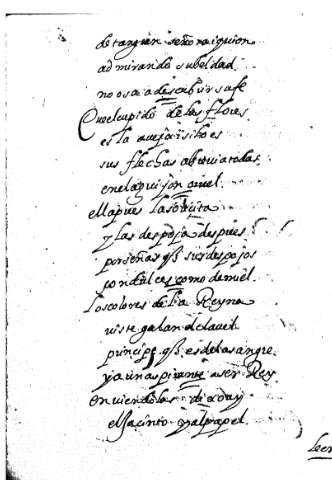 de tan gran señora, i quien
admirando su beldad
no osara descubrir su fe
Que el cupido de las flores
es la aveja i si lo es
sus flechas abreuia todas
en el aguijon cruel
ella pues las solicita
y las despoja despues
por señas q̃ sus despojos
son dulces como de miel.
Los colores de la Reyna
uiste galan el clauel
principe q̃ es de la sangre
y aun aspirante a ser Rey
en viendola dixo ay
el Jacinto y al papel.